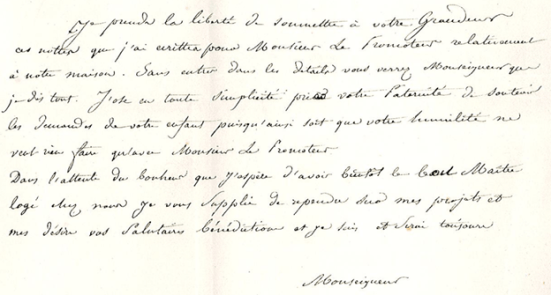 Je prends la liberté de soumettre à votre Grandeur
ces notes que j'ai écrittes pour Monsieur Le Promoteur relativement
à notre maison. Sans entrer dans les détails vous verrez Monseigneur que
je dis tout. J'ose en toute simplicité votre Paternité de soutenir
les demandes de votre enfant puisqu'ainsi soit que votre humilité ne
veut rien faire qu'avec Monsieur Le Promoteur
Dans l'attente du bonheur que j'espère d'avoir bientôt le Maître
logé chez nous je vous supplie de répandre sur mes projets et
mes désirs vos salutaires bénédictions et je suis et serai toujours
Monseigneur